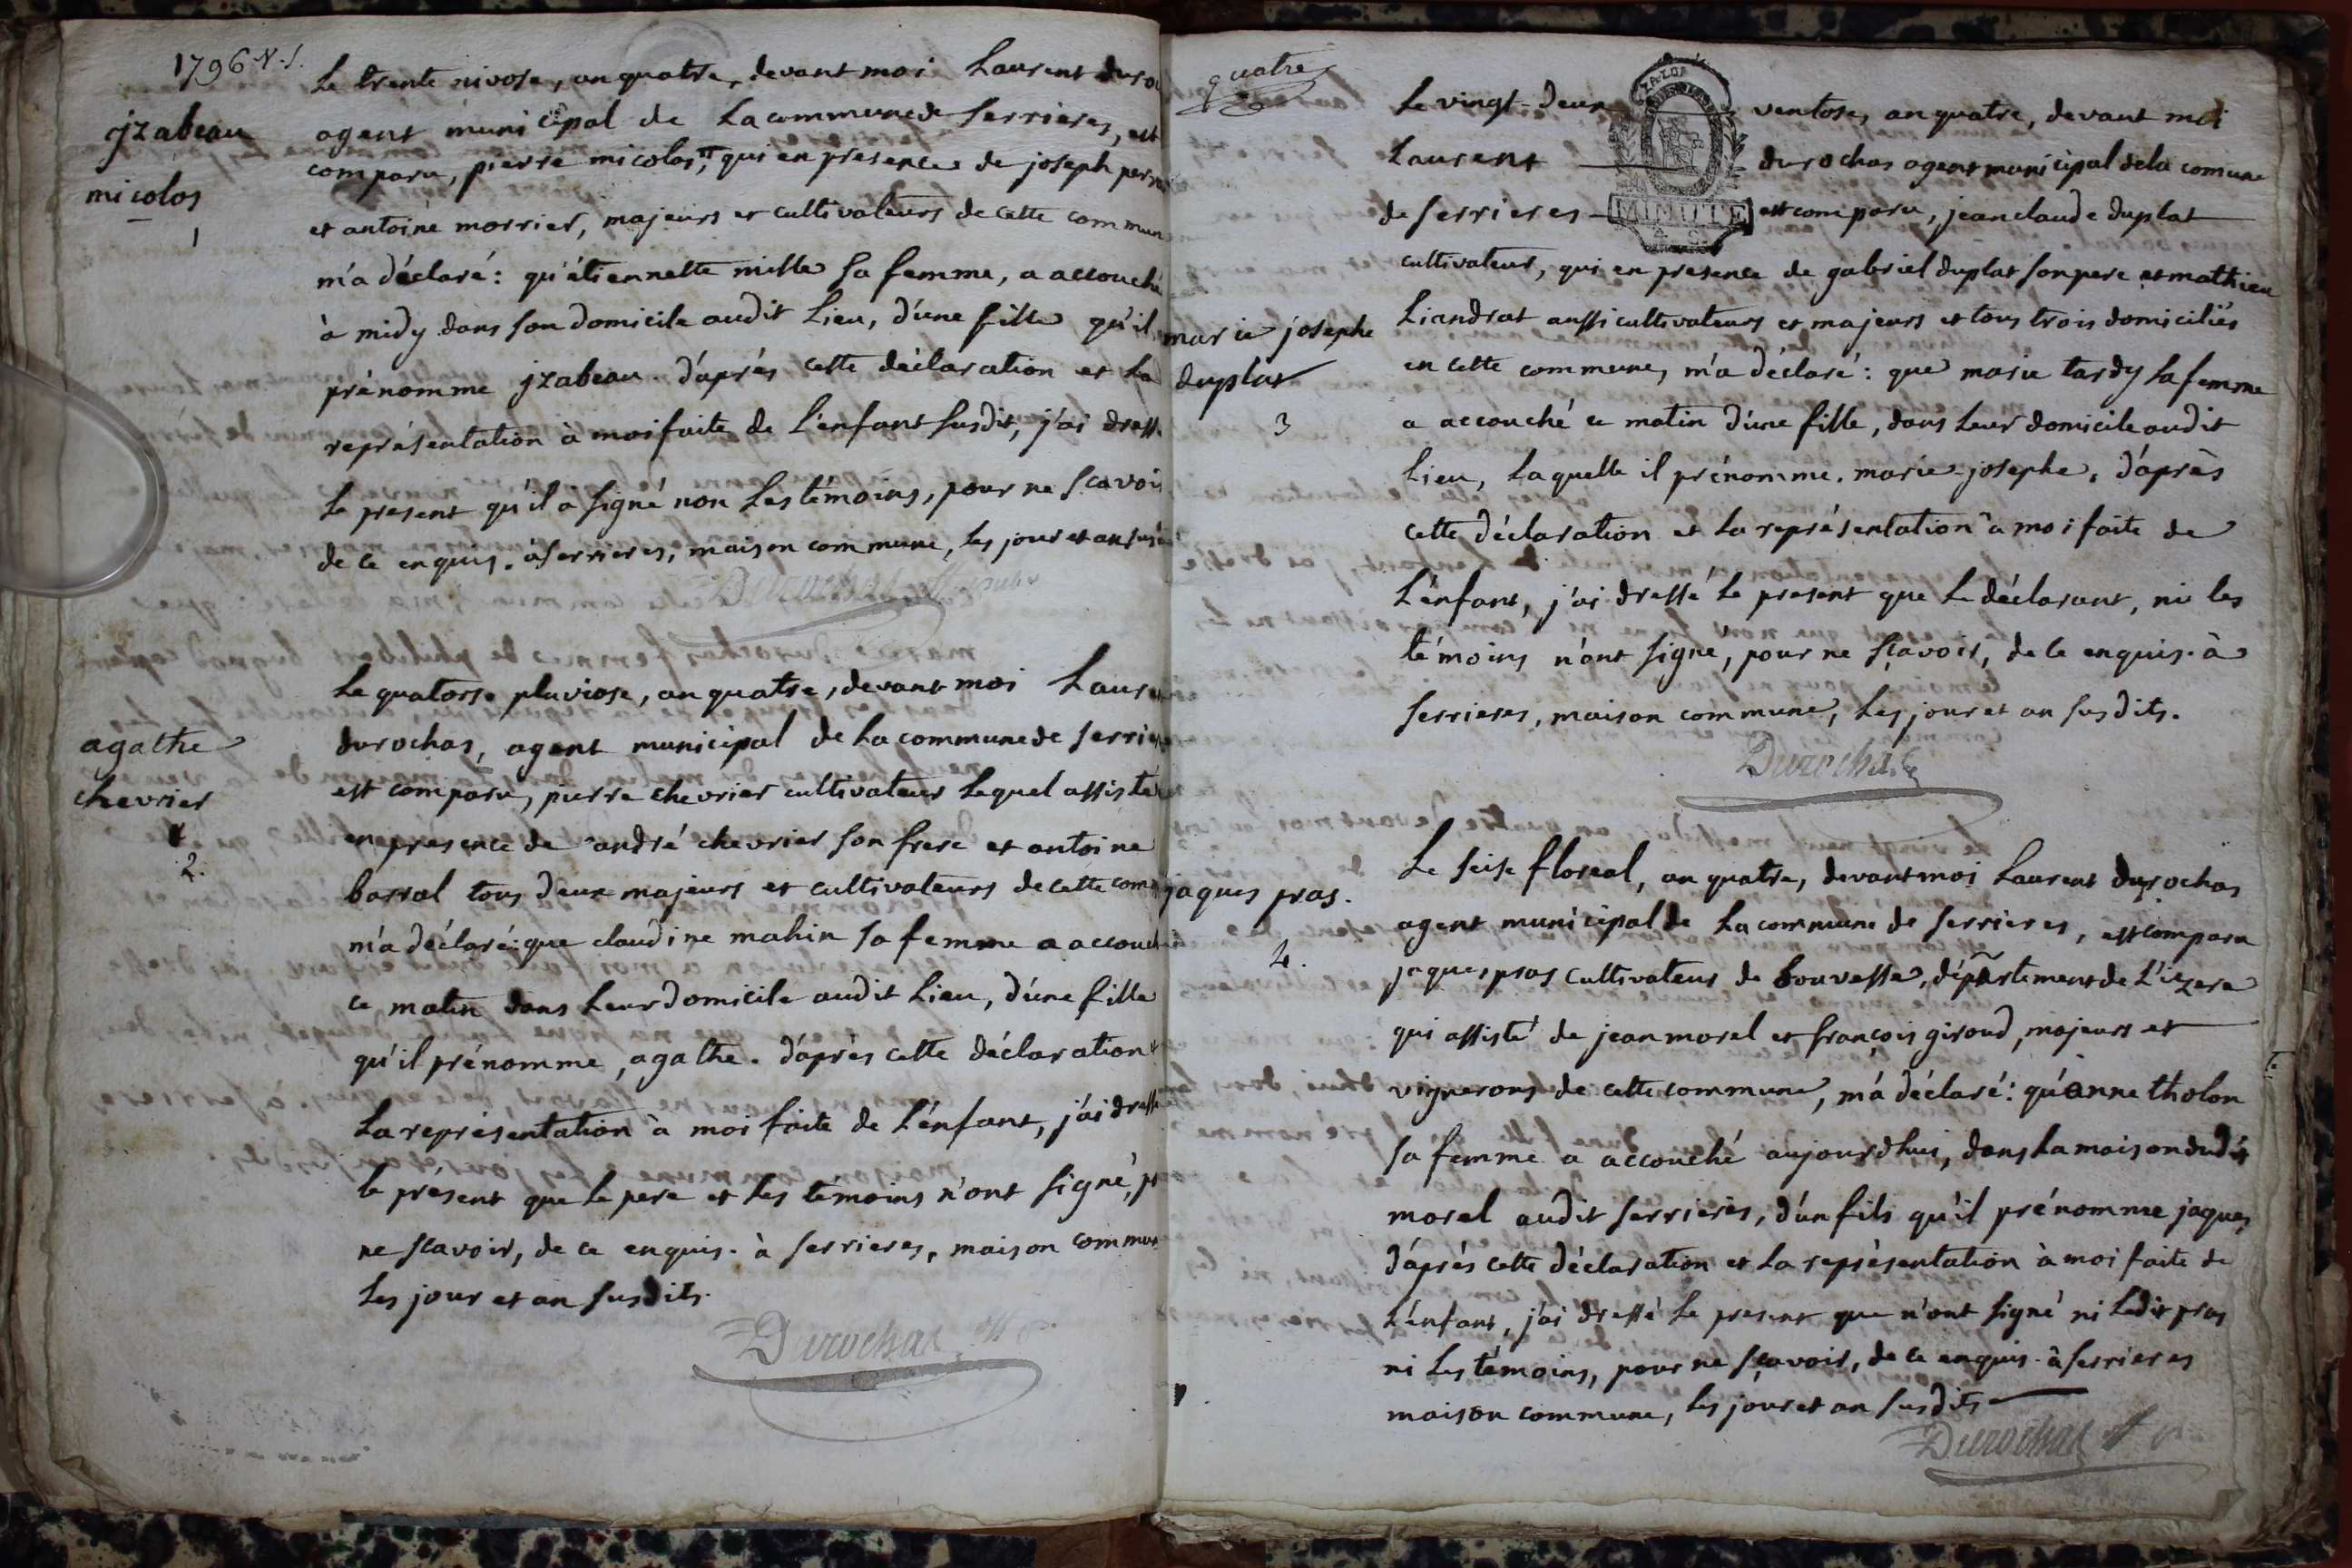 1796 N.S.
jzabeau
micolos
1
Le trente nivose, an quatre, devant moi Laurent duro
agent municipal de La commune de serrieres, est
comparu, pierre micolos, qui en presence de joseph perr
et antoine morrier, majeurs et cultivateurs de cette commun
m'a déclaré: qu'étiennette mille sa femme, a accouché
à midy dans son domicile audit Lieu, d'une fille qu'il
prénomme jzabeau. d'après cette déclaration et La
représentation à moi faite de L'enfant susdit, j'ai dressé
Le present qu'il a signé non Les témoins, pour ne scavoir
de ce enquis. à serrieres, maison commune, les jour et an sus
Durochat
agathe
chevrier
2.
Le quatorse pluviose, an quatre, devant moi Laure
durochas, agent municipal de La commune de serrie
est comparu, pierre chevrier cultivateur Lequel assisté
en presence de andré chevrier son frere et antoine
barral tous deux majeurs et cultivateurs de cette com
m'a déclaré: que claudine mahin sa femme a accouch
ce matin dans Leur domicile audit Lieu, d'une fille
qu'il prénomme, agathe. d'après cette déclaration
La représentation à moi faite de L'enfant, j'ai dress
le présent que Le pere et Les témoins n'ont signé, p
ne scavoir, de ce enquis. à serrieres, maison commun
Les jour et an susdits.
Durochat
quatre
Le vingt-deux ventose, an quatre, devant moi
Laurent durochas agent municipal de la comune
de serrieres est comparu, jean claude duplat
MINUTE
cultivateur, qui en presence de gabriel duplat son pere et mathieu
Liandrat aussi cultivateurs et majeurs et tous trois domiciliés
marie josephe
duplat
3
en cette commune, m'a déclaré: que marie tardy sa femme
a accouché ce matin d'une fille, dans Leur domicile audit
Lieu, Laquelle il prénomme, marie josephe, d'après
cette déclaration et La représentation à moi faite de
L'enfant, j'ai dressé Le present que Le déclarant, ni les
témoins n'ont signé, pour ne sçavoir, de ce enquis. à
serrieres, maison commune, Les jour et an susdits.
Durochat
jaques pras.
4.
Le seise floreal, an quatre, devant moi Laurent durochas
agent municipal de La commune de serrieres, est comparu
jaques pras cultivateur de bouvesse, département de L'izere
qui assisté de jean morel et françois giroud, majeurs et
vignerons de cette commune, m'a déclaré: qu'anne tholon
sa femme a accouché aujourdhui, dans La maison dudit
morel audit serrieres, d'un fils qu'il prénomme jaques,
d'après cette déclaration et La représentation à moi faite de
L'enfant, j'ai dressé Le present que n'ont signé ni Ledit pras
ni Les témoins, pour ne sçavoir, de ce enquis. à serrieres
maison commune, les jour et an susdits
Durochat